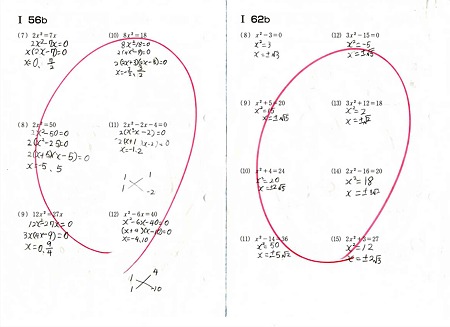 I 56b
(7) 2x²=7x
2x²-7x=0
x(2x-7)=0
x=0, 7/2
(10) 8x²=18
8x²-18=0
2(4x²-9)=0
(8) 2x²=50
2x²-50=0
2(x²-25)=0
2(x+5)(x-5)=0
x=-5, 5
(11) 2x²-2x-4=0
2(x²-x-2)=0
x=-1.2
1 1
1 -2
(9) 12x²=27x
12x²-27x=0
3x(4x-9)=0
x=0, 9/4
(12) x²-6x=40
x²-6x-40=0
(x+4)(x-10)=0
x=-4,10
1 4
1 -10
I 62b
(8) x²-3=0
x²=3
x=±√3
(12) 3x²-15=0
x=±√5
(9) x²+5=20
x=±√15
(13) 3x²+12=18
x²=2
x=±√2
(10) x²+4=24
x²=20
x=±2√5
(14) 2x²-16=20
x²=18
x=±3√2
(11) x²-14=36
x²=50
x=±5√2
(15) 2x²+3=27
x²=12
x=±2√3